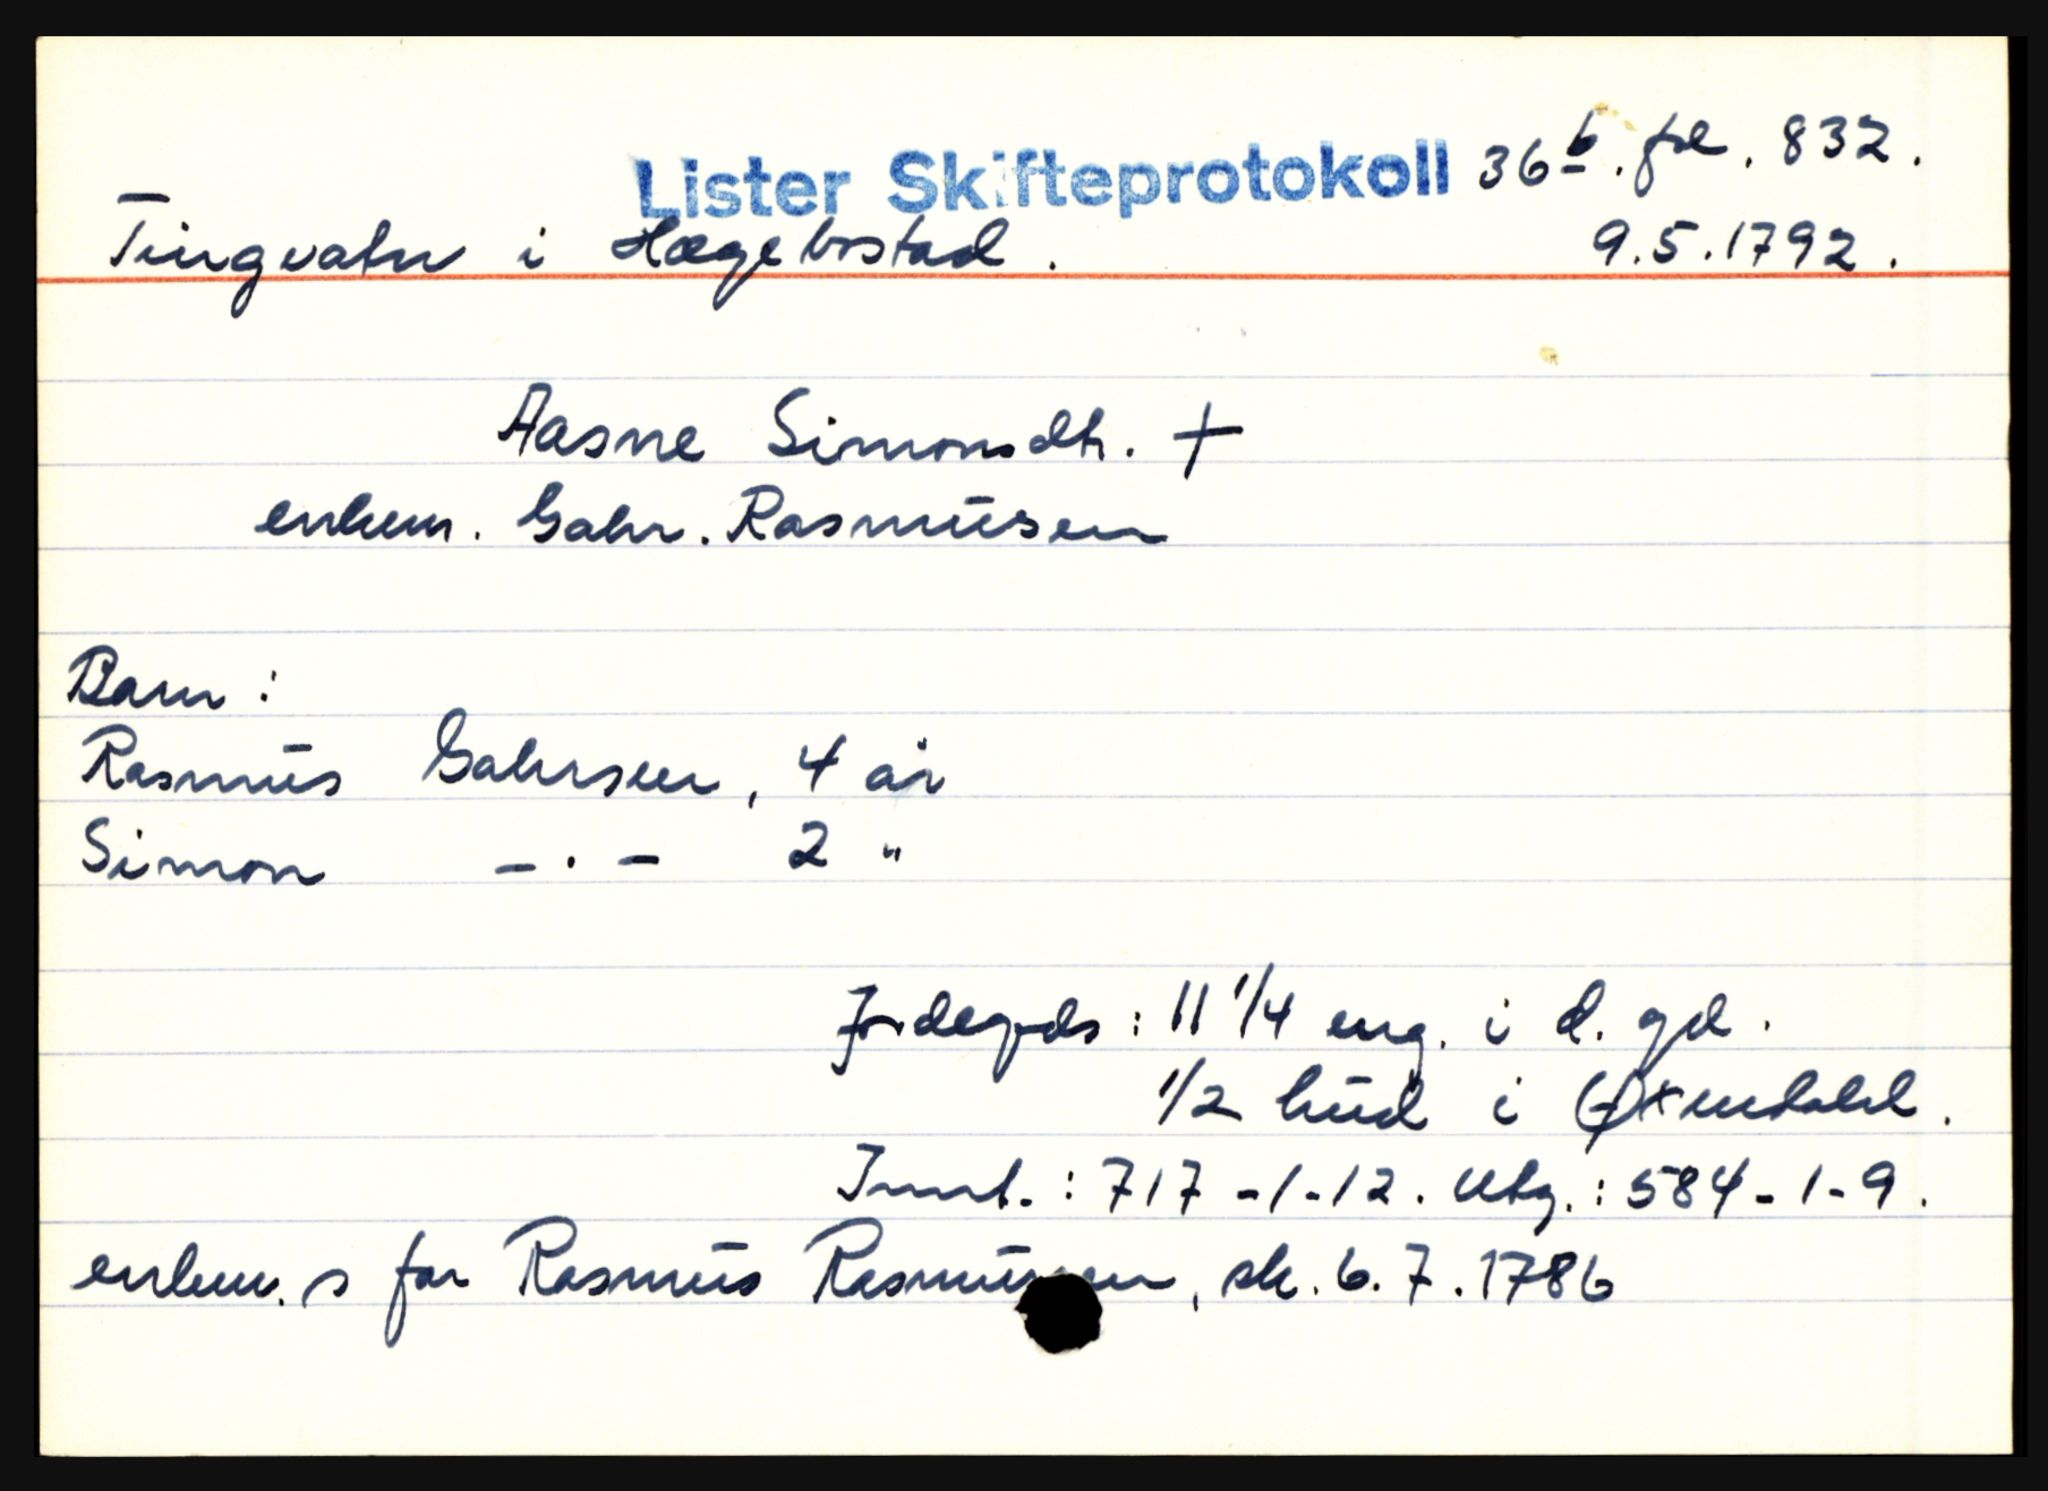 Lister Skifteprotokoll 36 b. fol. 832.
Tingvatn i Hægebostad. 9.5.1792.
Aasne Simonsdtr. +
enkem. Gabr. Rasmusen
Barn:
Rasmus Gabrsen, 4 år
Simon - . - 2 "
Jordegods: 11 1/4 eng. i d. gd.
1/2 hud i Øxendahl.
Innt.: 717-1-12. Utg.: 584-1-9.
enkem. s far Rasmus Rasmussen, sk. 6.7.1786